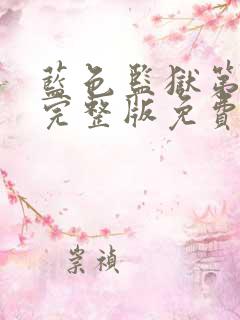 藍色監獄第
完整版免費
崇禎